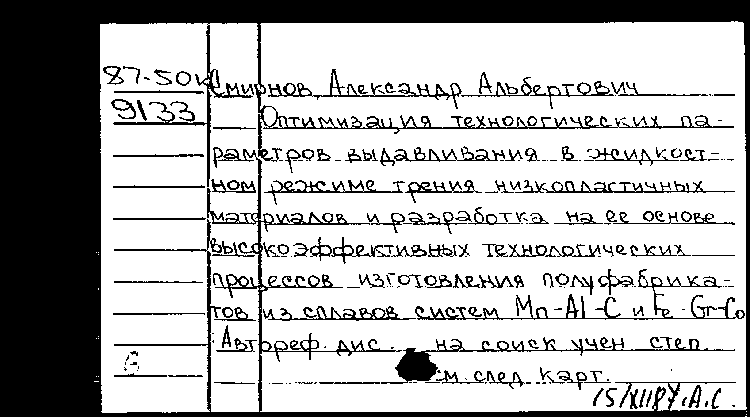 87-50к Смирнов, Александр Альбертович
9133 Оптимизация технологических па-
раметров выдавливания в жидкост-
ном режиме трения низкопластичных
материалов и разработка на ее основе
высокоэффективных технологических
процессов изготовления полуфабрика-
тов из сплавов систем Mn-Al-C и Fe-Gr-Co
Автореф. дис. на соиск учен степ.
м. след карт.
15/XII87. А.С.